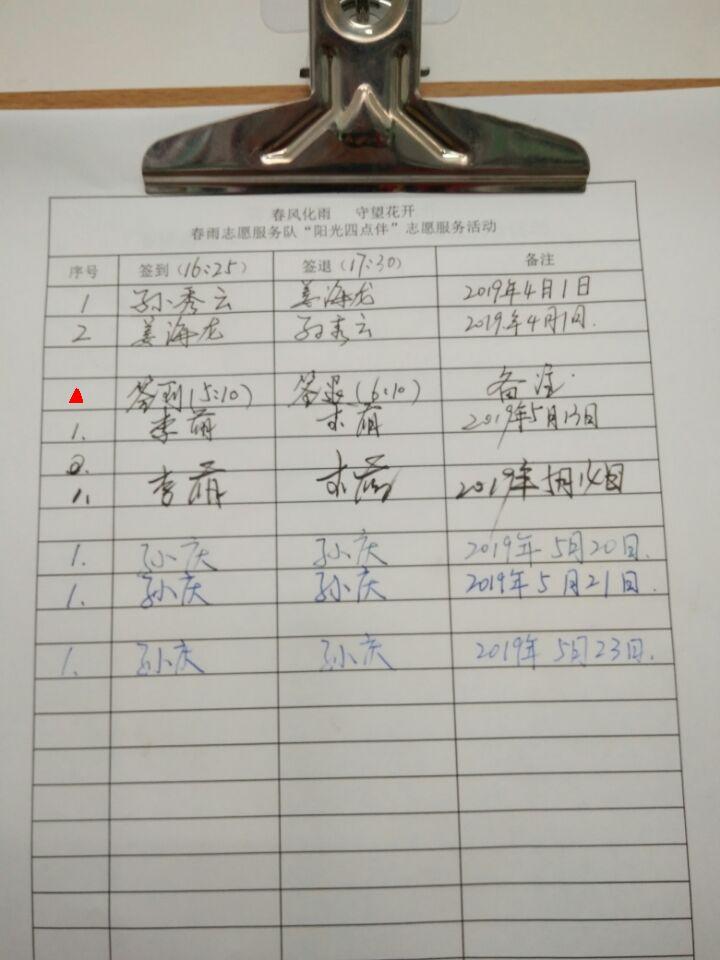 春风化雨 守望花开
春雨志愿服务队“阳光四点伴”志愿服务活动
序号 签到(16:25) 签退(17:30) 备注
1 孙秀云 姜海龙 2019年4月1日
2 姜海龙 孙秀云 2019年4月1日.
签到(5:10) 签退(6:10) 备注
1. 李萌 李萌 2019年5月13日
2.
1. 李萌 李萌 2019年5月14日
1. 孙庆 孙庆 2019年5月20日.
1. 孙庆 孙庆 2019年5月21日.
1. 孙庆 孙庆 2019年5月23日.